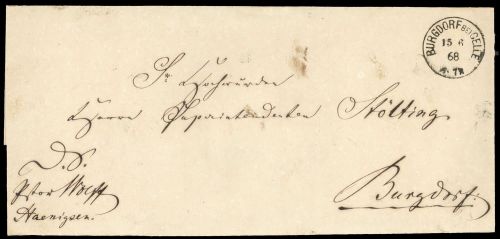 BURGDORF BEI CELLE
15 6
68
Sr. Hochwürden
Herrn Superintendenten Stölting
D. S.
Pstor Wolff
Haenigsen.
Burgdorf.